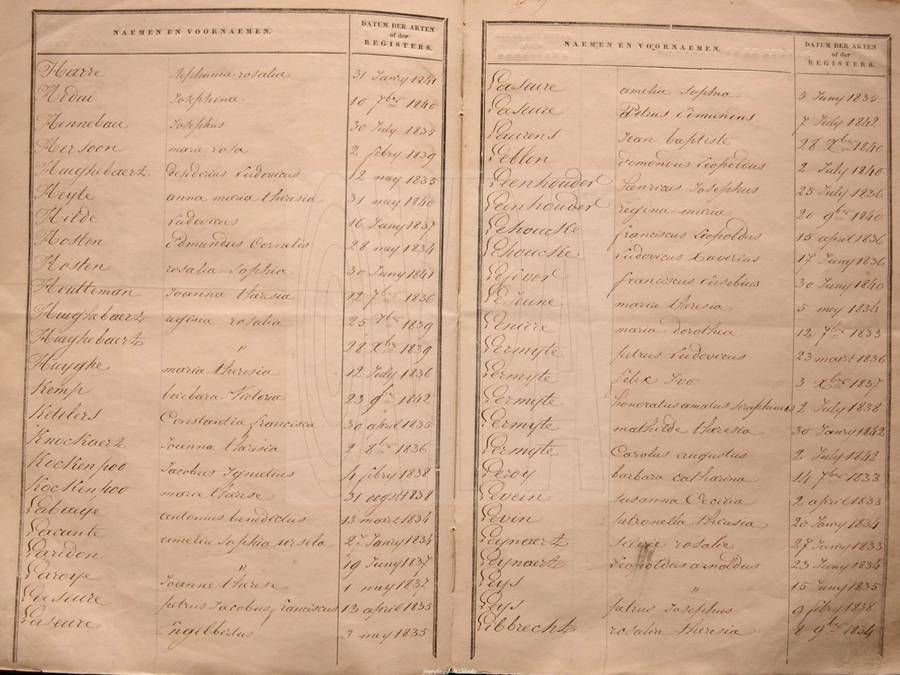 NAEMEN EN VOORNAEMEN. DATUM DER AKTEN of der REGISTERS.
Harre Stephania rosalia 31 Janry 1841
Hedui Josephina 10 7bre 1840
Hennebau Josephus 30 July 1835
Hersoon maria rosa 2 febry 1839
Huyghebaert desiderius Ludovicus 12 mey 1835
Heyte anna maria theresia 31 mey 1840
Hilde Ludovicus 16 Juny 1837
Hosten Edmundus Cornelis 28 mey 1834
Hosten rosalia Sophia 30 Juny 1841
Heutteman Joanna theresia 12 7bre 1836
Huyghebaert regina rosalia 25 1839
Huyghebaert " 28 Xbre 1839
Huyghe maria theresia 12 July 1836
Kemp barbara Victoria 23 9bre 1842
Kebbers Constantia francisca 30 april 1835
Knockaert Joanna theresia 2 8bre 1836
Kockenpoo Jacobus Ignatius 4 febry 1838
Kockenpoo marie therese 31 ougst 1838
Labaeye antonius benedictus 13 maert 1834
Lacante amelia Sophia ursula 27 Janry 1834
Laridon " 19 Juny 1837
Laroye Joanne therese 1 mey 1837
Laseure petrus Jacobus franciscus 13 april 1835
Laseure Engelbertus 3 mey 1835
NAEMEN EN VOORNAEMEN. DATUM DER AKTEN of der REGISTERS.
Laseure amelia Sophia 5 Juny 1834
Laseure Petrus Edmundus 7 July 1842
Laurens Jean baptiste 28 Xbre 1840
Leblon Edmondus Leopoldus 2 July 1840
Leenhouder henricus Josephus 25 July 1836
Leenhouder regina maria 20 9bre 1840
Lehoucke franciscus Leopoldus 15 april 1836
Lehoucke Ludovicus Xaverius 17 Juny 1836
Lefever franciscus Eusebius 30 Juny 1840
LeJeune maria theresia 5 mey 1836
Leniere maria dorothea 12 7bre 1833
Lermyte petrus Ludovicus 23 maert 1836
Lermyte felix Ivo 3 xbre 1837
Lermyte honoratus amatus Seraphinus 2 July 1838
Lermyte mathilde theresia 30 Janry 1842
Lermyte Carolus augustus 2 July 1842
Leroy barbara catharina 14 7bre 1833
Levein susanna Cecilia 2 april 1833
Levin petronella theresia 20 Janry 1834
Leynaert rosalie 27 Janry 1833
Leynaert Leopoldus arnoldus 23 Juny 1834
Leys " 15 Juny 1835
Leys petrus Josephus 9 febry 1838
Libbrecht rosalia theresia 8 9bre 1834